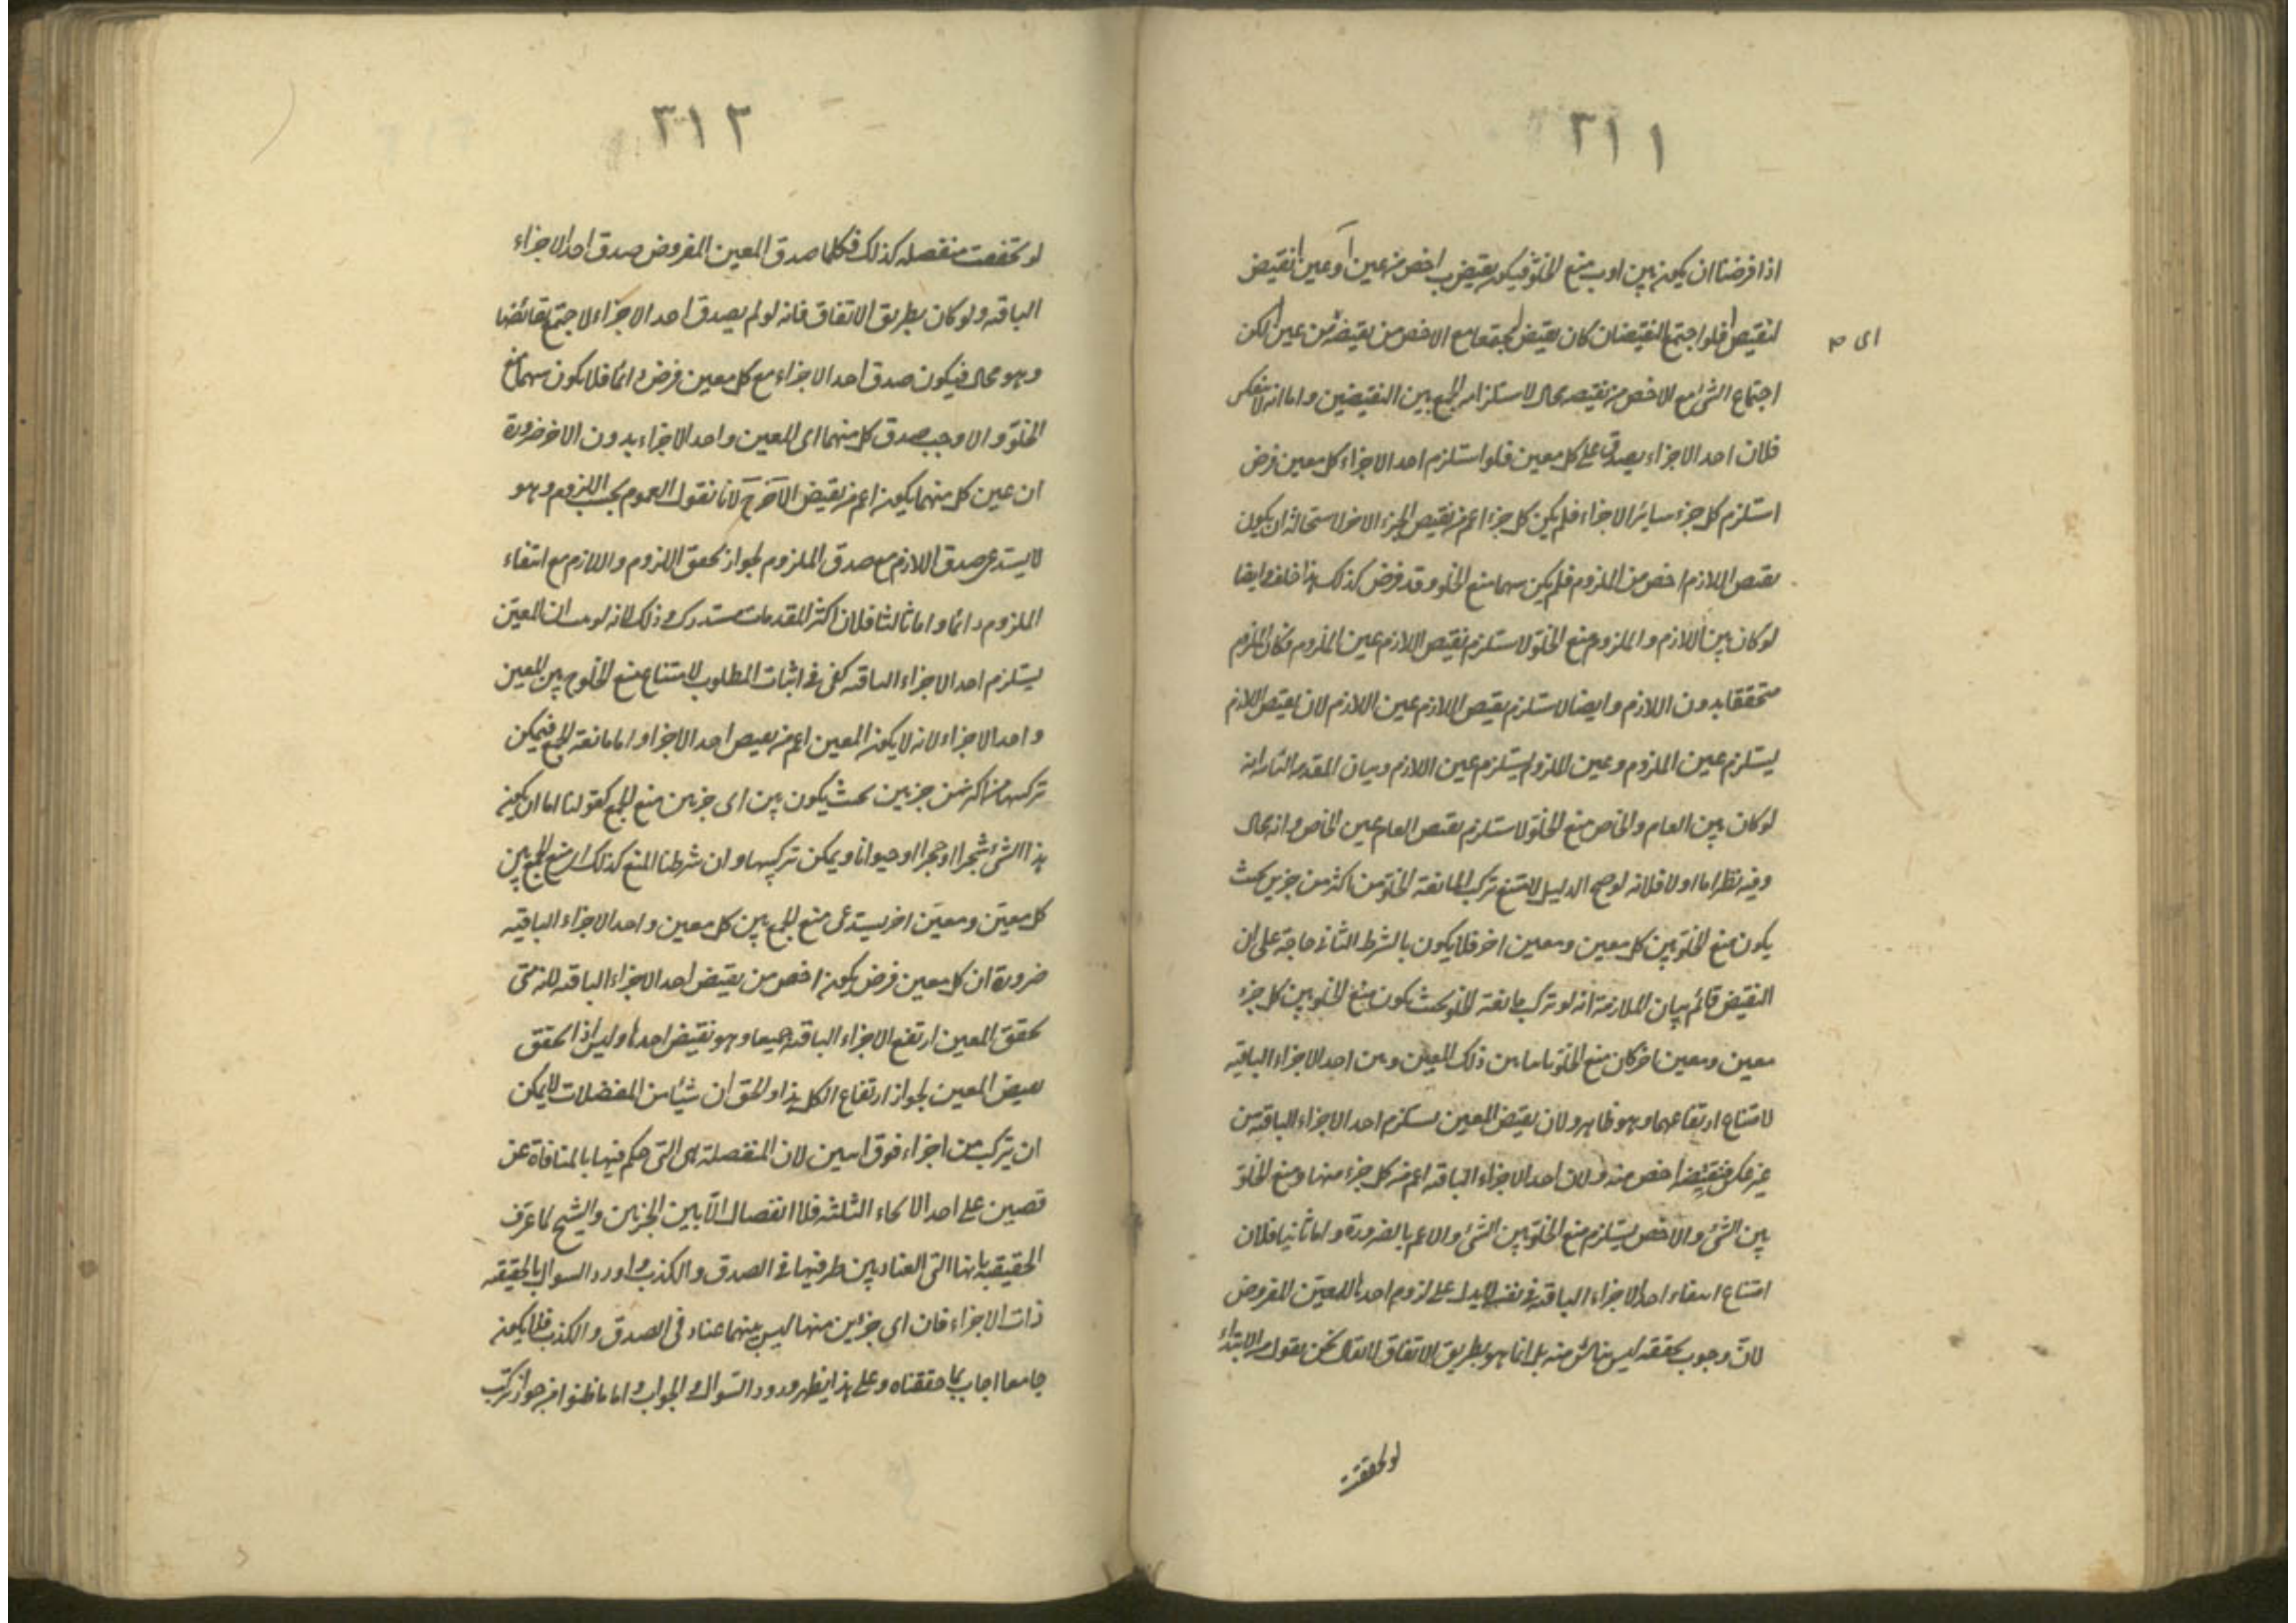 ٣١١
اذا فرضنا ان يكون بين ا وب منع الخلو فيكون نقيض ب اخص من عين آ وعين النقيض
لنقيض فلو اجتمع النقيضان كان نقيض مجتمعا مع الاخص من نقيضه من عين لكن
اى م
اجتماع الشئ مع الاخص من نقيضه محال لاستلزامه الجمع بين النقيضين واما انه لا ينعكس
فلان احد الاجزاء يصدق على كل معين فلو استلزم احد الاجزاء كل معين فرض
استلزم كل جزء سائر الاجزاء فلم يكن كل جزء اعم من نقيض الجزء الاخر لاستحالة ان يكون
نقيض اللازم اخص من الملزوم فلم يكن بينهما منع الخلو وقد فرض كذلك هذا خلف وايضا
لو كان بين اللازم والملزوم منع الخلو لاستلزم نقيض اللازم عين الملزوم فكان الملزوم
متحققا بدون اللازم وايضا لاستلزم نقيض اللازم عين اللازم لان نقيض اللازم
يستلزم عين الملزوم وعين الملزوم يستلزم عين اللازم وبيان المقدمة الثانية انه
لو كان بين العام والخاص منع الخلو لاستلزم نقيض العام عين الخاص وانه محال
وفيه نظر اما اولا فلانه لو صح الدليل لامتنع تركب المانعة الخلو من اكثر من جزئين بحيث
يكون منع الخلو بين كل معين ومعين اخر فلا يكون بالشرط الثانى حاجة على ان
النقيض قائم بيان الملازمة انه لو تركب مانعة الخلو بحيث يكون منع الخلو بين كل جزء
معين ومعين اخر كان منع الخلو ثابتا بين ذلك المعين وبين احد الاجزاء الباقية
لامتناع ارتفاعهما وهو ظاهر ولان نقيض المعين يستلزم احد الاجزاء الباقية من
غير عكس فنقيضه اخص منه ولان احد الاجزاء الباقية اعم من كل جزء منها ومنع الخلو
بين الشئ والاخص يستلزم منع الخلو بين الشئ والاعم بالضرورة واما ثانيا فلان
امتناع انتفاء احد الاجزاء الباقية فى نفسه لا يدل على لزوم احدها للمعين المفروض
لان وجوب تحققه ليس ناش منه بل انما هو بطريق الاتفاق لا يقال نحن نقول من الابتداء
لو تحققت
٣١٢
لو تحققت منفصلة كذلك فكلما صدق المعين المفروض صدق احد الاجزاء
الباقية ولو كان بطريق الاتفاق فانه لو لم يصدق احد الاجزاء لاجتمع نقائضها
وهو محال فيكون صدق احد الاجزاء مع كل معين فرض دائما فلا يكون بينهما منع
الخلو والا وجب صدق كل منهما اى المعين واحد الاجزاء بدون الاخر ضرورة
ان عين كل منهما يكون اعم من نقيض الآخر ح لانا نقول العموم بحسب اللزوم وهو
لا يستدعى صدق اللازم مع صدق الملزوم لجواز تحقق اللزوم واللازم مع انتفاء
الملزوم دائما واما ثالثا فلان اكثر المقدمات مستدرك وذلك لانه لو ان المعين
يستلزم احد الاجزاء الباقية كفى فى اثبات المطلوب لامتناع منع الخلو ح بين المعين
واحد الاجزاء لانه لا يكون المعين اعم من نقيض احد الاجزاء واما مانعة الجمع فيمكن
تركبها من اكثر من جزئين بحيث يكون بين اى جزئين منع الجمع كقولنا اما ان يكون
هذا الشئ شجرا او حجرا او حيوانا ويمكن تركيبها وان شرطنا المنع كذلك اذ منع الجمع بين
كل معين ومعين اخر يستدعى منع الجمع بين كل معين واحد الاجزاء الباقية
ضرورة ان كل معين فرض يكون اخص من نقيض احد الاجزاء الباقية لانه متى
تحقق المعين ارتفع الاجزاء الباقية جميعا وهو نقيض احدها وليس اذا تحقق
نقيض المعين لجواز ارتفاع الكل هذا والحق ان شيئا من المنفصلات لا يمكن
ان يتركب من اجزاء فوق اثنين لان المنفصلة هى التى حكم فيها بالمنافاة عن
قضيتين على احد الانحاء الثلثة فلا انفصال الا بين الجزئين والشيخ لما عرف
الحقيقية بانها التى العناد بين طرفيها فى الصدق والكذب واورد السوال بالحقيقة
ذات الاجزاء فان اى جزئين منها ليس بينهما عناد فى الصدق والكذب فلا يكون
جامعا اجاب بما حققناه وعلى هذا يظهر ورود السوال والجواب واما ما ظنوا من جواز تركب